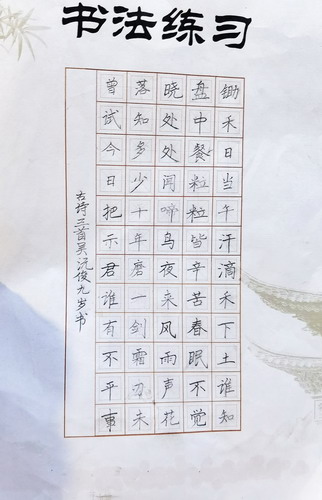 书法练习
锄禾日当午汗滴禾下土谁知
盘中餐粒粒皆辛苦春眠不觉
晓处处闻啼鸟夜来风雨声花
落知多少十年磨一剑霜刃未
曾试今日把示君谁有不平事
古诗三首吴沅俊九岁书